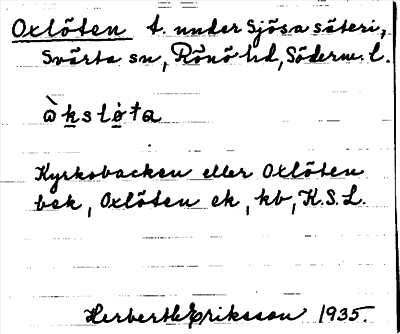 Oxlöten t. under Sjösa säteri,
Svärta sn, Rönö hd, Söderm. l.
ὼkslø̀ta
Kyrkobacken eller Oxlöten
bek, Oxlöten ek, kb, K.S.L.
Herbert Eriksson 1935.